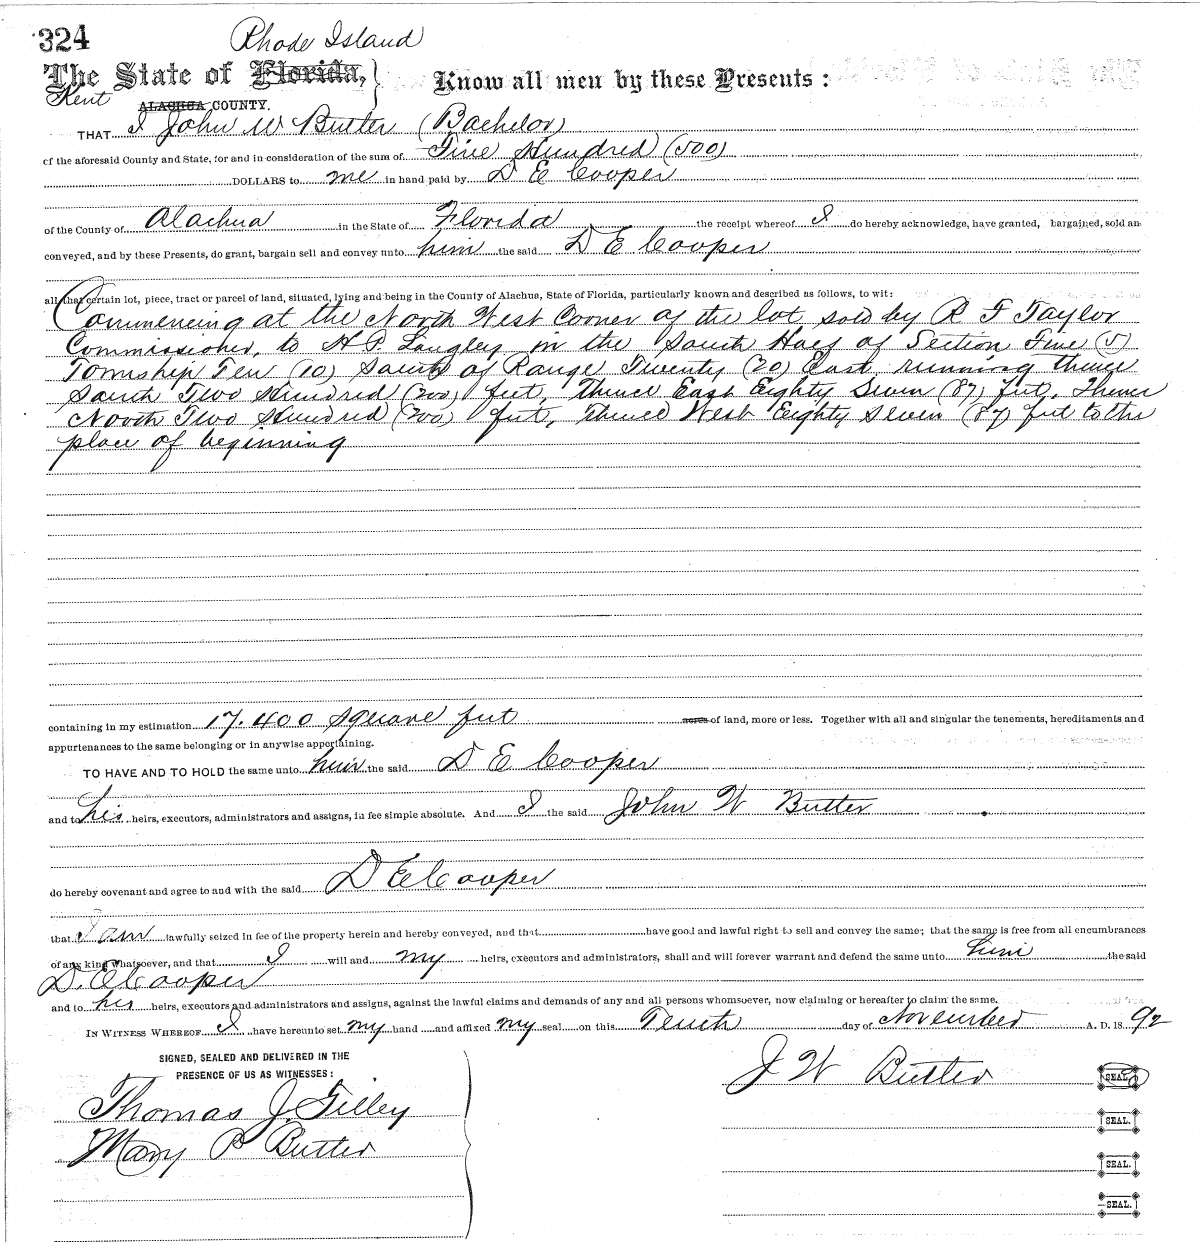 324
Rhode Island
The State of Florida,
Know all men by these Presents:
Kent
ALACHUA COUNTY.
THAT I John W Butter (Bachelor)
of the aforesaid County and State, for and in consideration of the sum of Five Hundred (500)
DOLLARS to me in hand paid by D E Cooper
of the County of Alachua in the State of Florida the receipt whereof I do hereby acknowledge, have granted, bargained, sold an
conveyed, and by these Presents, do grant, bargain sell and convey unto him the said D E Cooper
all that certain lot, piece, tract or parcel of land, situated, lying and being in the County of Alachua, State of Florida, particularly known and described as follows, to wit:
Commencing at the North West Corner of the lot sold by R F Taylor
Commissioner, to H P Langley in the South Half of Section Five (5)
Township Ten (10) South of Range Twenty (20) East, running thence
South Two Hundred (200) feet, Thence East Eighty Seven (87) feet, Thence
North Two Hundred (200) feet, Thence West Eighty Seven (87) feet to the
place of beginning
containing in my estimation 17.400 square feet acres of land, more or less. Together with all and singular the tenements, hereditaments and
appurtenances to the same belonging or in anywise appertaining.
TO HAVE AND TO HOLD the same unto him the said D E Cooper
and to his heirs, executors, administrators and assigns, in fee simple absolute. And I the said John W Butter
do hereby covenant and agree to and with the said D E Cooper
that I am lawfully seized in fee of the property herein and hereby conveyed, and that have good and lawful right to sell and convey the same; that the same is free from all encumbrances
of any kind whatsoever, and that I will and my heirs, executors and administrators, shall and will forever warrant and defend the same unto him the said
D. E Cooper
and to his heirs, executors and administrators and assigns, against the lawful claims and demands of any and all persons whomsoever, now claiming or hereafter to claim the same.
IN WITNESS WHEREOF I have hereunto set my hand and affixed my seal on this Tenth day of November A. D. 18 92
SIGNED, SEALED AND DELIVERED IN THE
PRESENCE OF US AS WITNESSES:
J W Butter SEAL.
Thomas J. Tilley
SEAL.
Mary P Butter
SEAL.
SEAL.